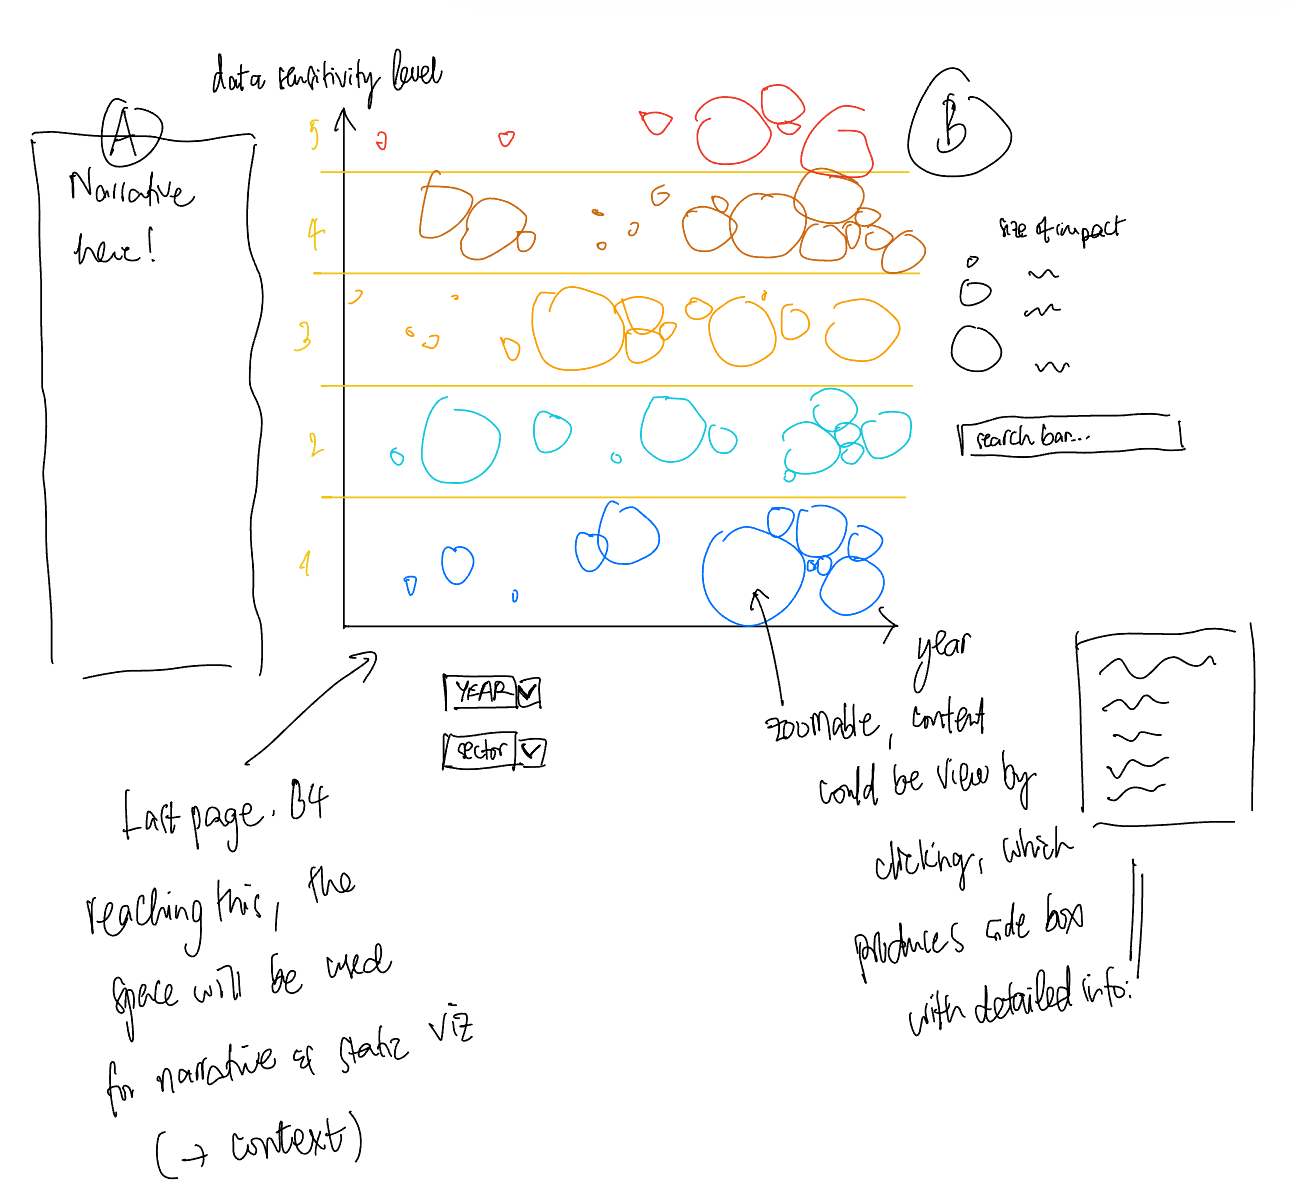 data sensitivity level
A
Narrative
here!
5
4
3
2
1
B
size of impact
search bar...
year
YEAR
sector
Last page. B4
reaching this, the
space will be used
for narrative & static viz
(→ context)
zoomable, content
could be view by
clicking, which
produces side box
with detailed info.